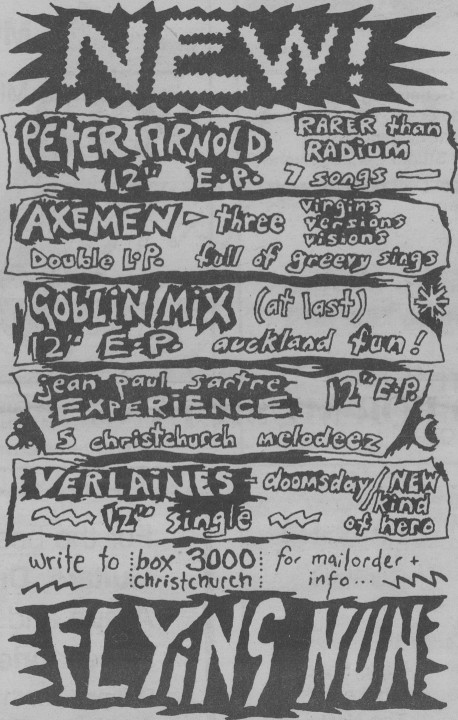 NEW!
PETER ARNOLD RARER than
RADiUM
12" E.P. 7 songs —
AXEMEN - three virgins
versions
visions
Double L.P. full of greevy sings
GObLiN MiX (at last)
12" E.P. auckland fun!
jean paul sartre 12" E.P.
EXPERiENCE
5 christchurch melodeez
VERLAiNES - doomsday/NEW
kind
12" single of hero
write to box 3000 for mailorder +
christchurch info...
FLYiNG NUN